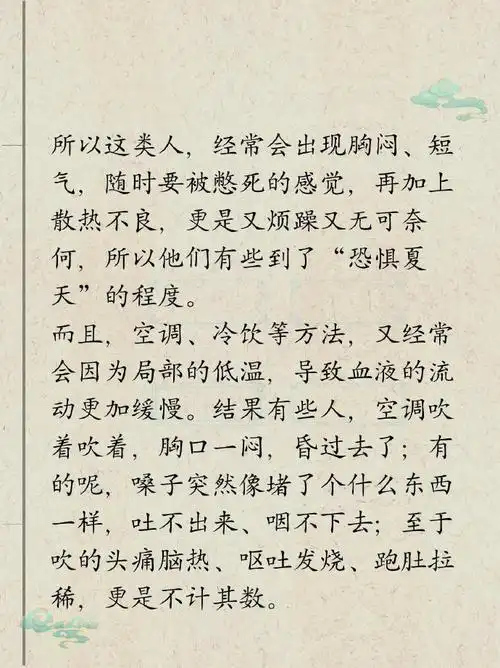 所以这类人，经常会出现胸闷、短
气，随时要被憋死的感觉，再加上
散热不良，更是又烦躁又无可奈
何，所以他们有些到了“恐惧夏
天”的程度。
而且，空调、冷饮等方法，又经常
会因为局部的低温，导致血液的流
动更加缓慢。结果有些人，空调吹
着吹着，胸口一闷，昏过去了；有
的呢，嗓子突然像堵了个什么东西
一样，吐不出来、咽不下去；至于
吹的头痛脑热、呕吐发烧、跑肚拉
稀，更是不计其数。